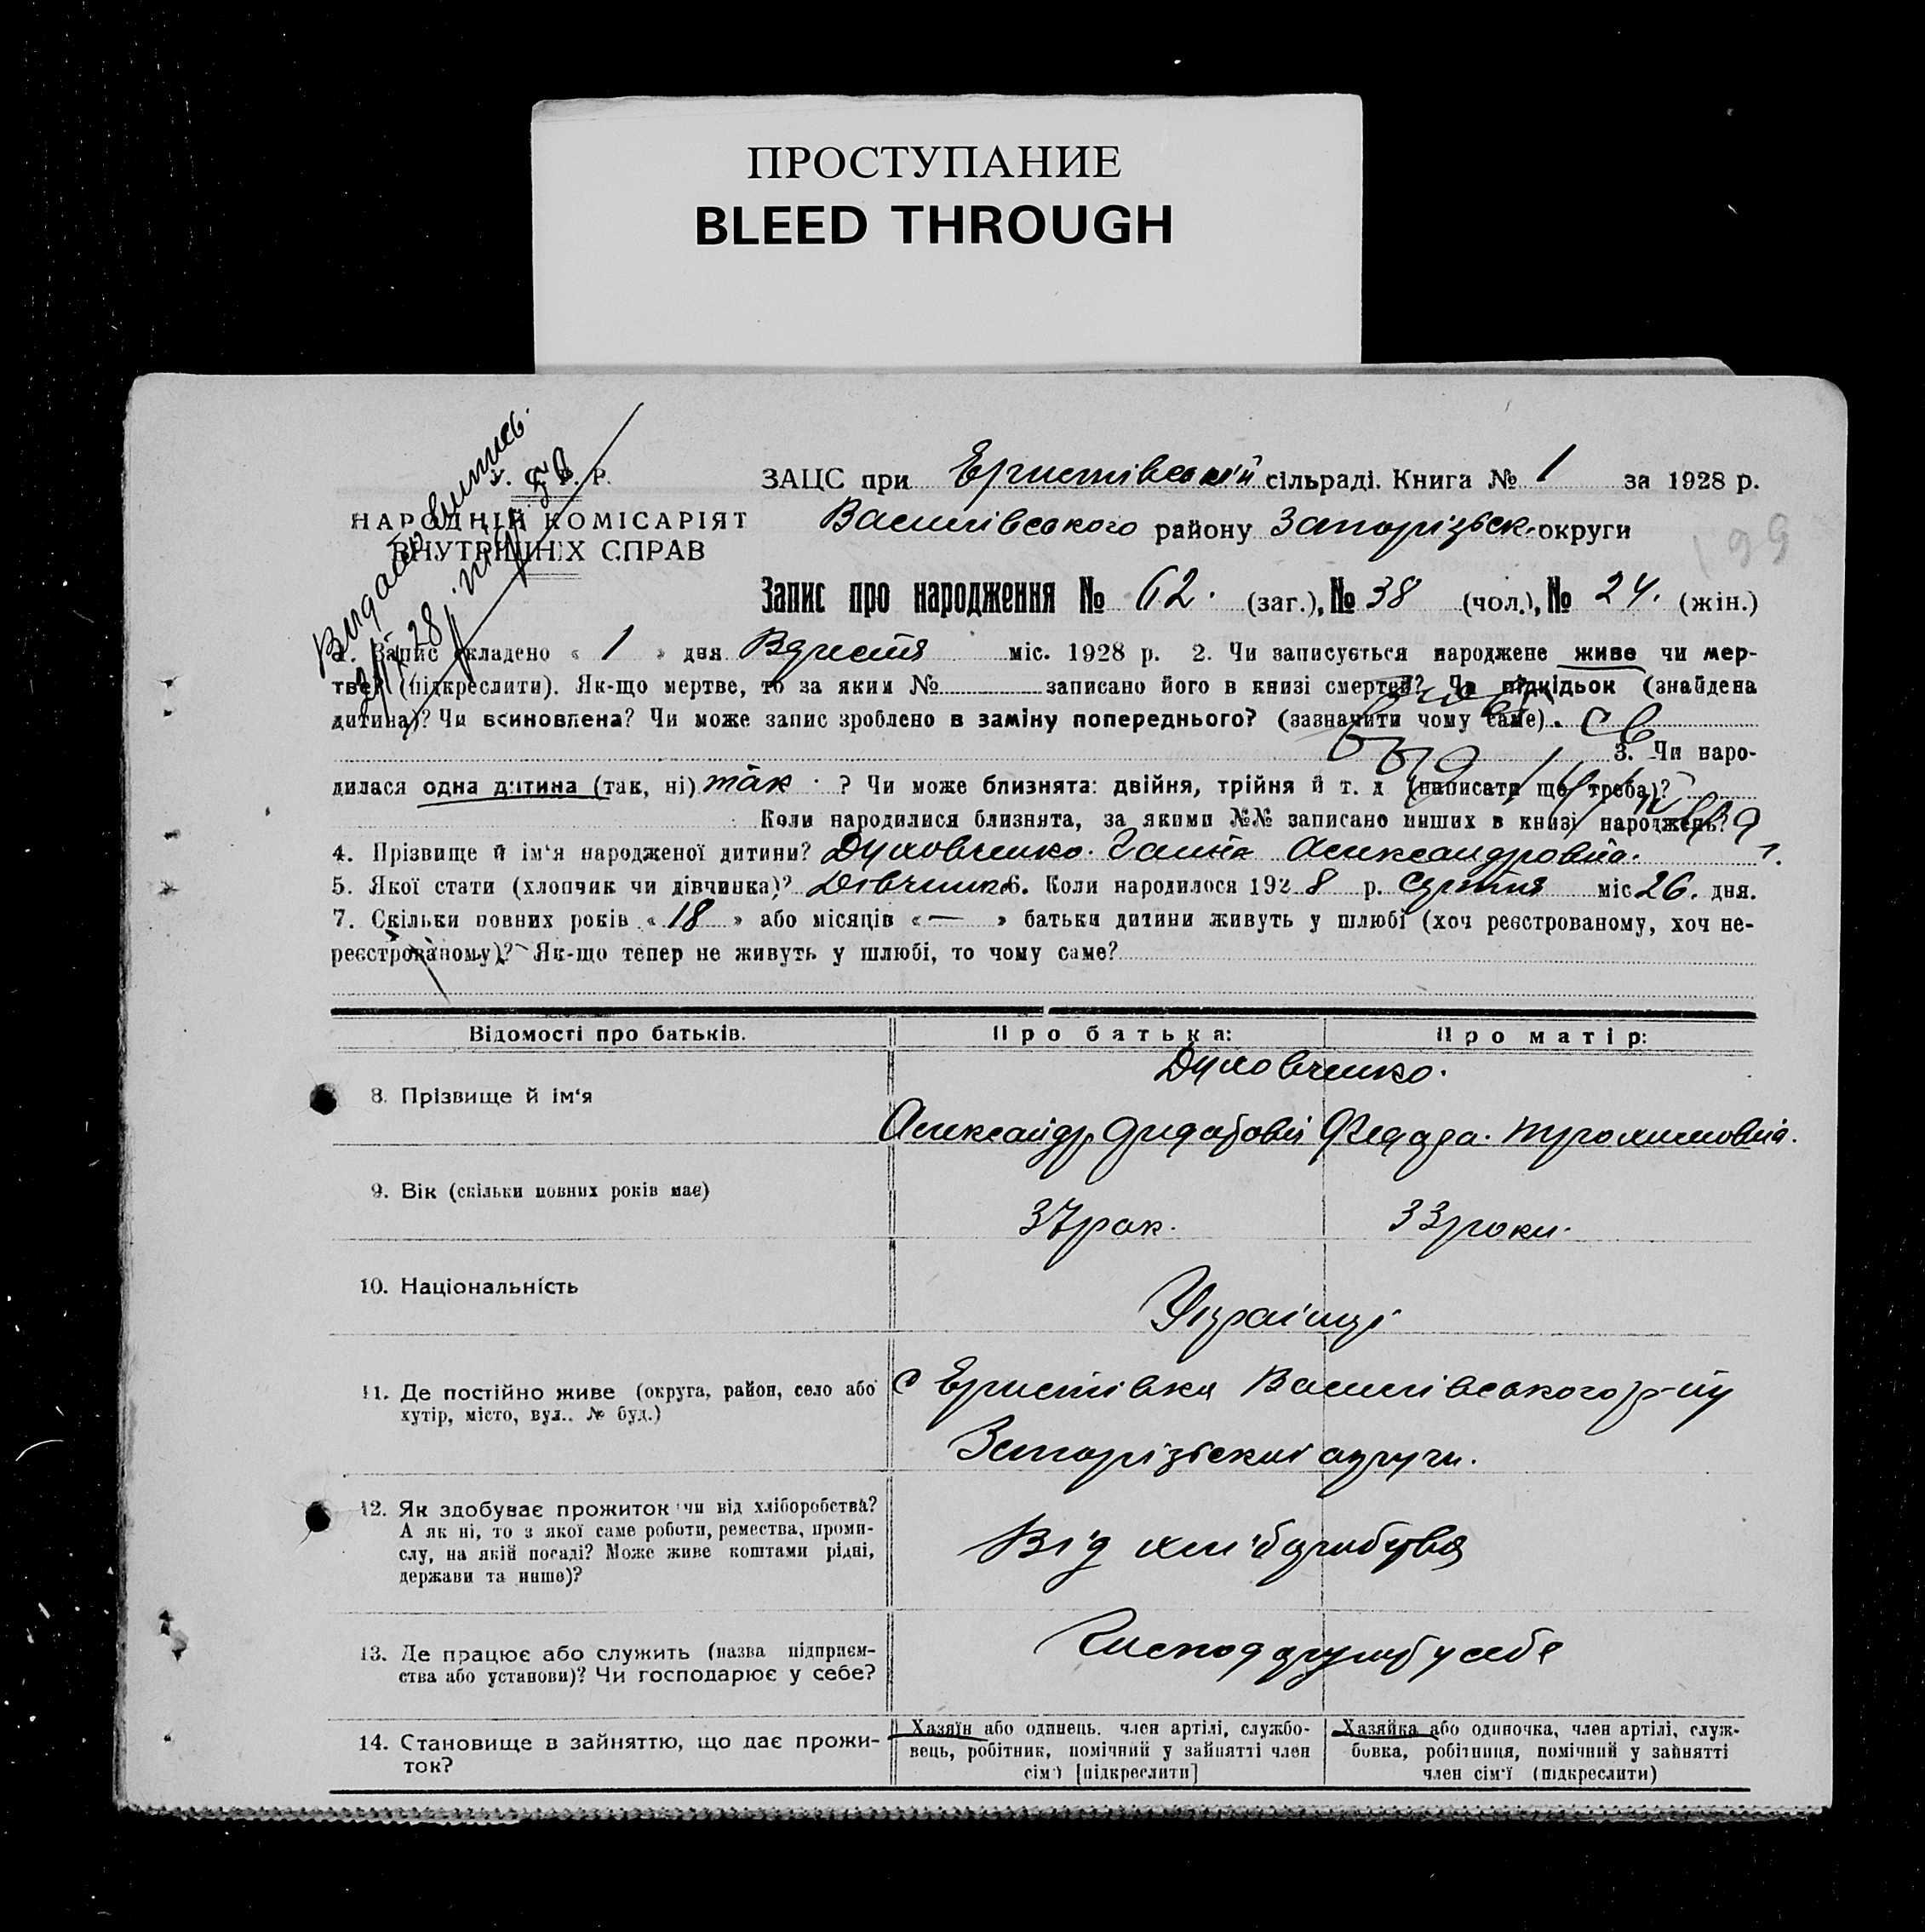 ПРОСТУПАНИЕ
BLEED THROUGH
Р.
НАРОДНІЙ КОМІСАРІЯТ
ВНУТРІШНІХ СПРАВ
ЗАЦС при Еристівській сільраді. Книга № 1 за 1928 р.
Василівського району Запорізьк. округи
199
Запис про народження № 62. (заг.), № 38 (чол.), № 24. (жін.)
1. Запис складено « 1 » дня Вересня міс. 1928 р. 2. Чи записується народжене живе чи мер-
тве? (підкреслити). Як-що мертве, то за яким № записано його в книзі смертей? Чи підкідьок (знайдена
дитина)? Чи всиновлена? Чи може запис зроблено в заміну попереднього? (зазначити чому саме).
3. Чи наро-
дилася одна дитина (так, ні) так ? Чи може близнята: двійня, трійня й т. д (написати що треба)?
Коли народилися близнята, за якими №№ записано инших в книзі народжень?
4. Прізвище й ім'я народженої дитини? Духовченко. Ганна Александровна.
5. Якої статі (хлопчик чи дівчинка)? Дівчинка 6. Коли народилося 1928 р. Серпня міс 26. дня.
7. Скільки повних років « 18 » або місяців « — » батьки дитини живуть у шлюбі (хоч реєстрованому, хоч не-
реєстрованому)? Як-що тепер не живуть у шлюбі, то чому саме?
Відомості про батьків.
Про батька:
Про матір:
8. Прізвище й ім'я
Духовченко.
Александр Федора. Трохимовна.
9. Вік (скільки повних років має)
37 рок.
33 роки.
10. Національність
Українці
11. Де постійно живе (округа, район, село або
хутір, місто, вул.. № буд.)
с Еристівка Василівського р-ну
Запорізької округи.
12. Як здобуває прожиток чи від хліборобства?
А як ні, то з якої саме роботи, ремества, проми-
слу, на якій посаді? Може живе коштами рідні,
держави та инше)?
Від хліборобства
13. Де працює або служить (назва підприєм-
ства або установи)? Чи господарює у себе?
у себе
14. Становище в зайняттю, що дає прожи-
ток?
Хазяїн або одинець. член артілі, службо-
вець, робітник, помічний у зайнятті член
сім'ї [підкреслити]
Хазяйка або одиночка, член артілі, служ-
бовка, робітниця, помічний у зайнятті
член сім'ї (підкреслити)